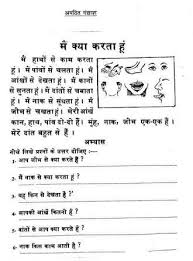 अपठित गद्यांश
मैं क्या करता हूं
मैं हाथों से काम करता
हूं । मैं पांवों से चलता हूं । मैं
आंखों से देखता हूं । मैं कानों
से सुनता हूं । मैं दांतों से चबाता
हूं । मैं नाक से सूंघता हूं । मैं
जीभ से चखता हूं । मेरी आंखें
कान, हाथ, पांव दो-दो हैं । मुंह, नाक, जीभ एक-एक हैं ।
मेरे दांत बहुत से हैं ।
अभ्यास
नीचे लिखे प्रश्नों के उत्तर दीजिए :-
१- आप जीभ से क्या करते हैं ?
२- मैं नाक से क्या करता हूं ?
३- वह किन से देखता है ?
४- आपकी आंखें कितनी हैं ?
५- दांतों से आप क्या करते हैं ?
६- नाक किस काम आती है ?